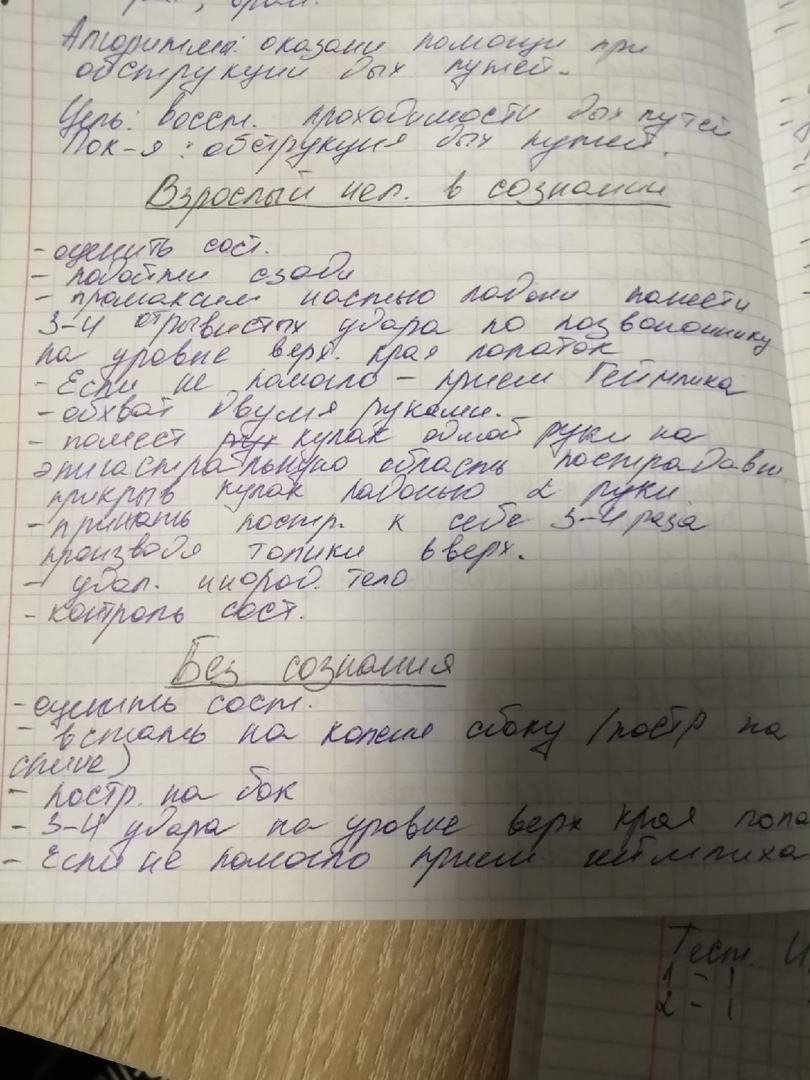 Алгоритм: оказани помощи при
обструкции дых путей.
Цель: восст. проходимости дых путей
Пок-я: обструкция дых путей.
Взрослый чел. в сознании
- оценить сост.
- подойти сзади
- проксим частью ладони нанести
3-4 отрывистых удара по позвоночнику
на уровне верх. края лопаток
- Если не помогло - прием Геймлиха
- обхват двумя руками.
- помест кулак одной руки на
эпигастральную область пострадавш
прикрыв кулак ладонью 2 руки.
- прижать постр. к себе 3-4 раза
производя толчки вверх.
- удал. инород. тело
- контроль сост.
Без сознания
- оценить сост.
- встать на колени сбоку (постр на
спине)
- постр. на бок
- 3-4 удара на уровне верх края лопа
- Если не помогло прием геймлиха
Тест
1 - 1
2 - 1